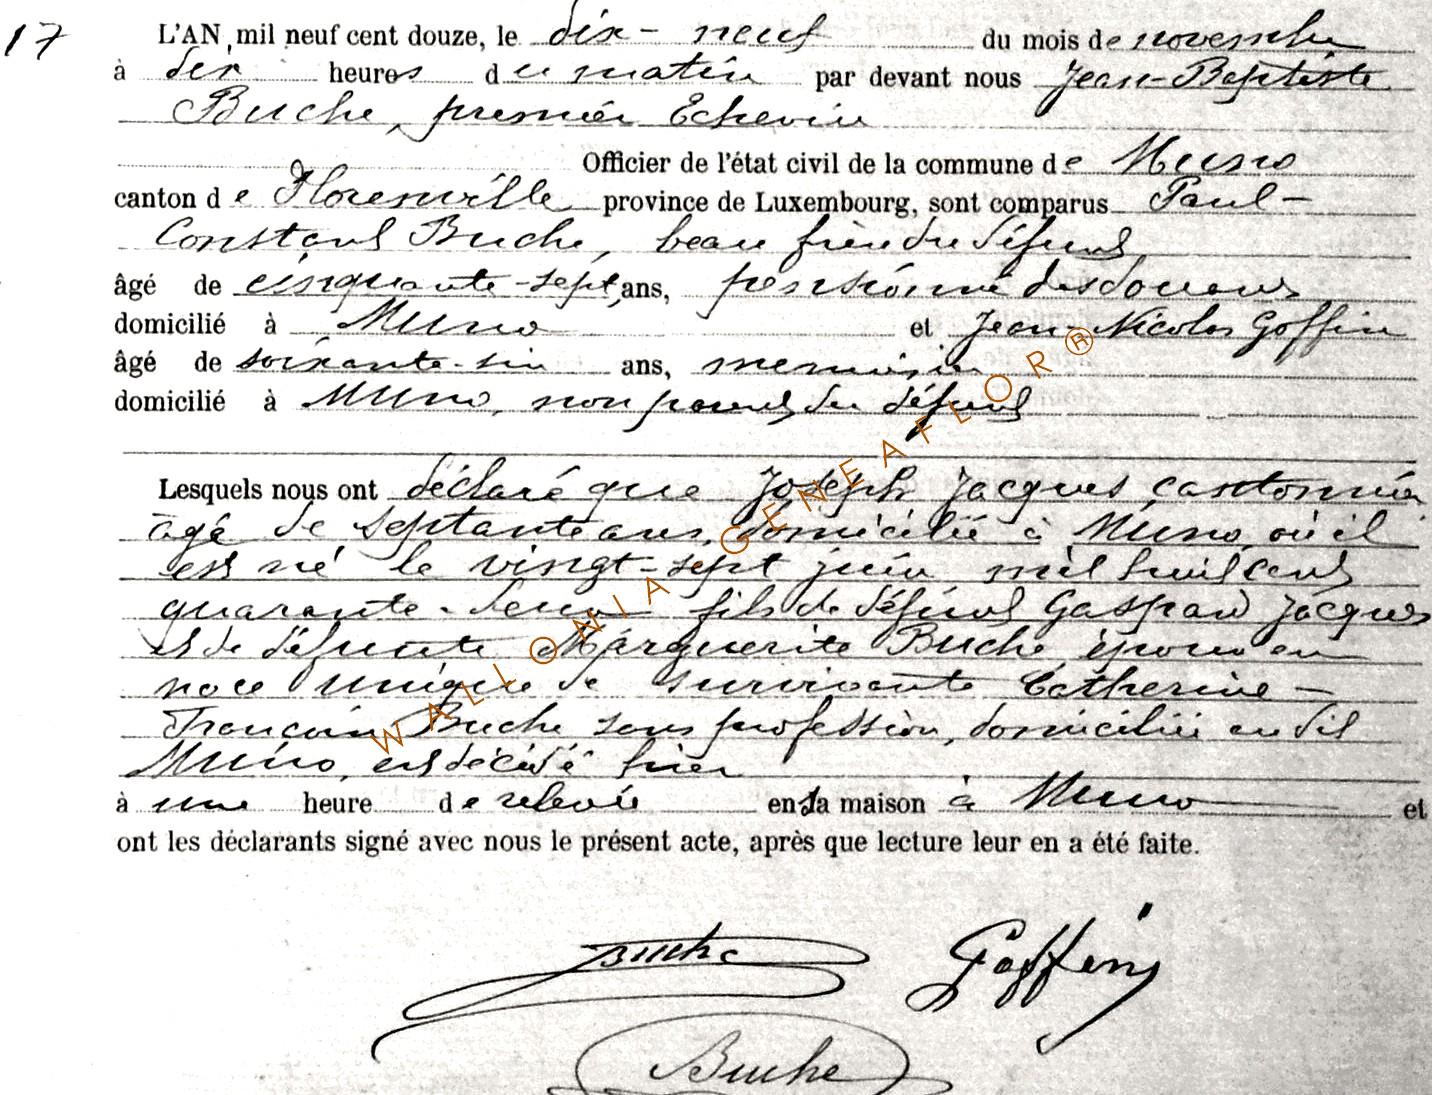 17 L'AN mil neuf cent douze, le dix-neuf du mois de novembre
à dix heures du matin par devant nous Jean-Baptiste
Buche, premier Echevin
Officier de l'état civil de la commune de Muno
canton de Florenville province de Luxembourg, sont comparus Paul-
Constant Buche, beau frère du défunt
âgé de cinquante-sept ans, pensionné des douanes
domicilié à Muno et Jean-Nicolas Goffin
âgé de soixante-six ans, menuisier
domicilié à Muno, non parent du défunt
Lesquels nous ont déclaré que Joseph Jacques cantonnier
âgé de septante ans, domicilié à Muno, où il
est né le vingt-sept juin mil huit cent
quarante-deux fils de défunt Gaspard Jacques
et de défunte Marguerite Buche, époux en
noce unique de survivante Catherine-
Françoise Buche sans profession, domiciliée au dit
Muno, est décédé hier
à une heure de relevée en sa maison à Muno et
ont les déclarants signé avec nous le présent acte, après que lecture leur en a été faite.
Buche Goffin
Buche
WALLONIA GENEAFLOR®